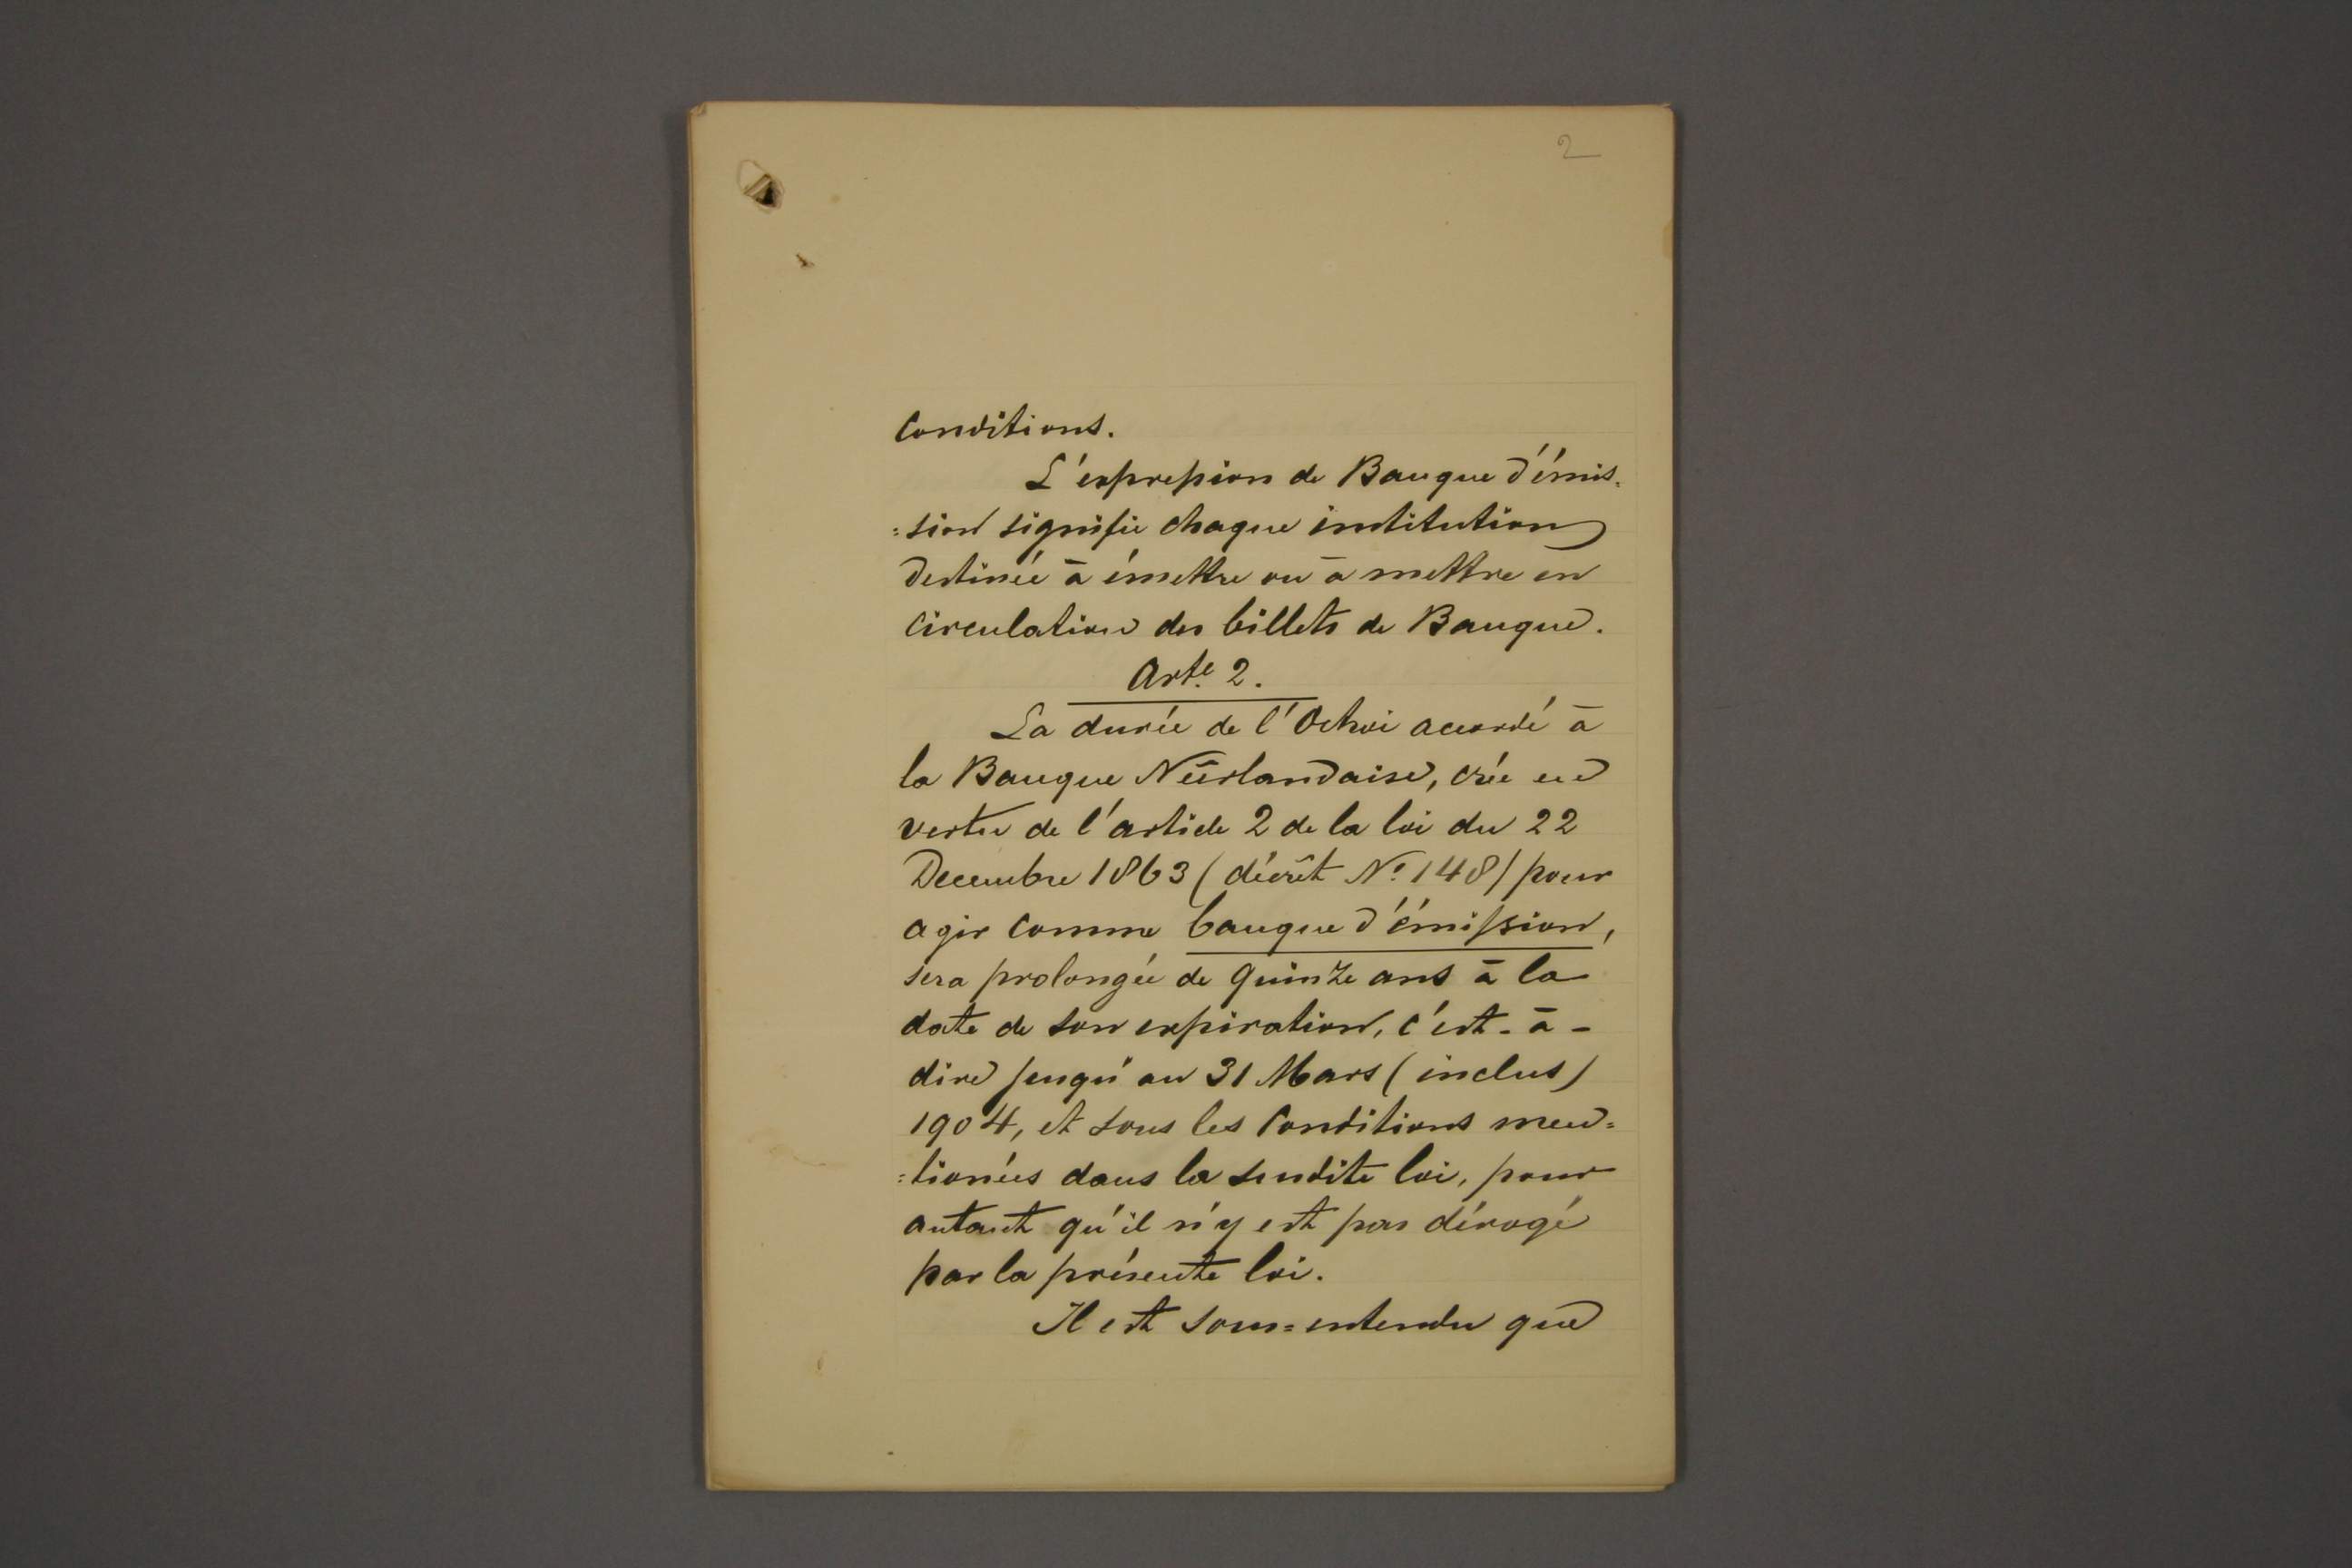 2
Conditions.
L'expression de Banque d'émis=
=sion signifie chaque institution
destinée à émettre ou à mettre en
circulation des billets de Banque.
Arte. 2.
La durée de l'Octroi accordé à
la Banque Néerlandaise, crée en
vertu de l'article 2 de la loi du 22
Decembre 1863 (décrêt No. 148) pour
agir comme banque d'émission,
sera prolongée de quinze ans à la
date de son expiration, c'est-à-
dire jusqu'au 31 Mars (inclus)
1904, et sous les Conditions men=
=tionées dans la susdite loi, pour
autant qu'il n'y est pas dérogé
par la présente loi.
Il est sous=entendu que